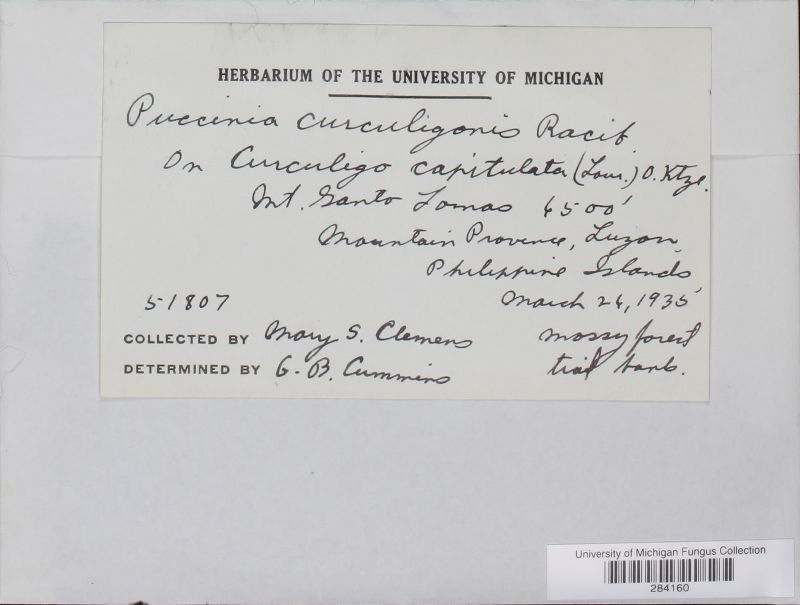 HERBARIUM OF THE UNIVERSITY OF MICHIGAN
Puccinia curculigonis Racib.
On Curculigo capitulata (Lour.) O. Ktze.
Mt. Santo Tomas 6500'
Mountain Province, Luzon,
Philippine Islands
51807 March 26, 1935
COLLECTED BY Mary S. Clemens mossy forest
DETERMINED BY G. B. Cummins trail bank.
University of Michigan Fungus Collection
284160